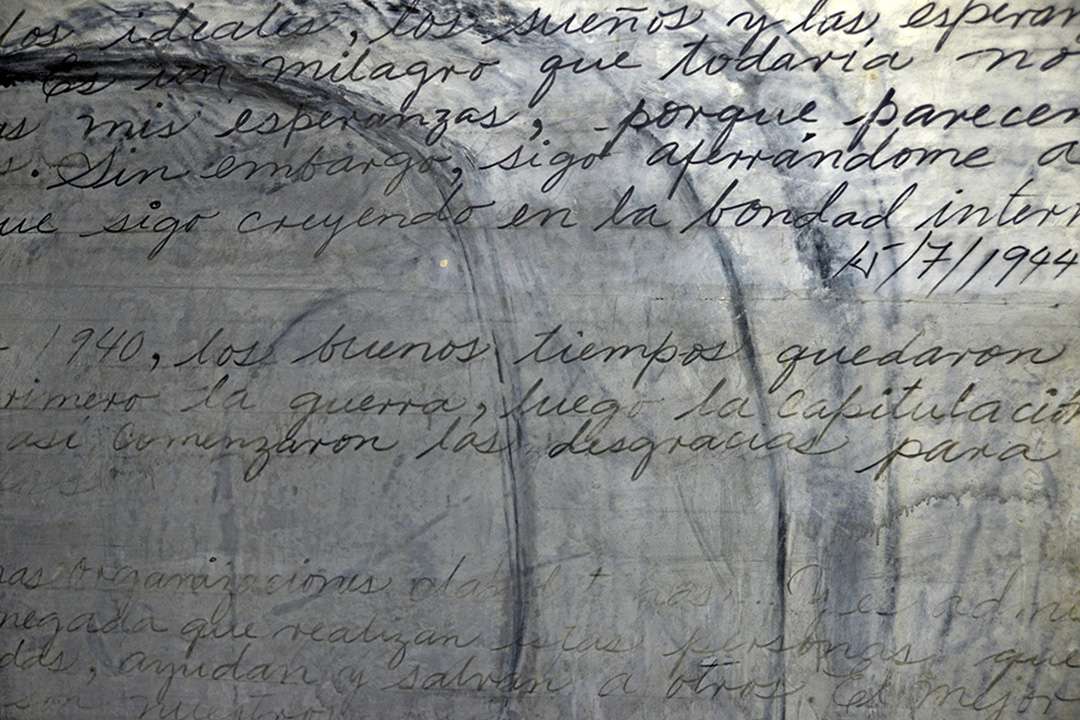 los ideales, los sueños y las esperan
Es un milagro que todavía no
as mis esperanzas, porque parecen
s. Sin embargo, sigo aferrándome a
ue sigo creyendo en la bondad inter
15/7/1944
1940, los buenos tiempos quedaron
rimero la guerra, luego la capitulación
así comenzaron las desgracias para
as organizaciones y es admi
negada que realizan estas personas que
das, ayudan y salvan a otros. El mejor
nuestro